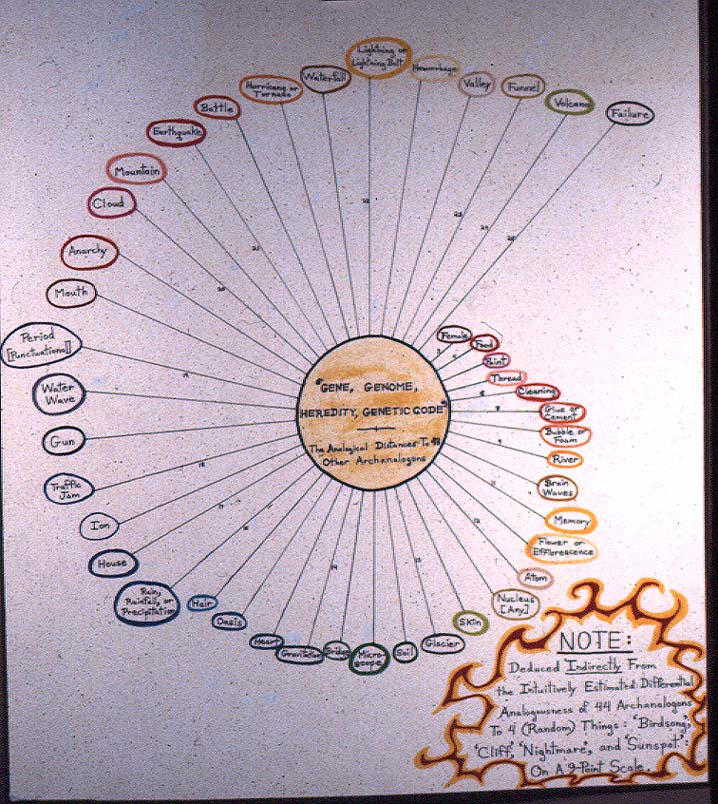 Lightning or
Lightning Bolt
Hemorrhage
Valley
Funnel
Volcano
Failure
Waterfall
Hurricane or
Tornado
Battle
Earthquake
Mountain
Cloud
Anarchy
Mouth
Period
[Punctuational]
Water
Wave
Gun
Traffic
Jam
Ion
House
Rain,
Rainfall, or
Precipitation
Hair
Oasis
Heart
Gravitation
Bridge
Micro-
scope
Soil
Glacier
Skin
Nucleus
[Any]
Atom
Flower or
Efflorescence
Memory
Brain
Waves
River
Bubble or
Foam
Glue or
Cement
Cleaning
Thread
Paint
Food
Female
"GENE, GENOME,
HEREDITY, GENETIC CODE"
The Analogical Distances To 48
Other Archanalogons
NOTE:
Deduced Indirectly From
the Intuitively Estimated Differential
Analogousness of 44 Archanalogons
To 4 (Random) Things: 'Birdsong,'
'Cliff,' 'Nightmare', and 'Sunspot':
On A 9-Point Scale.